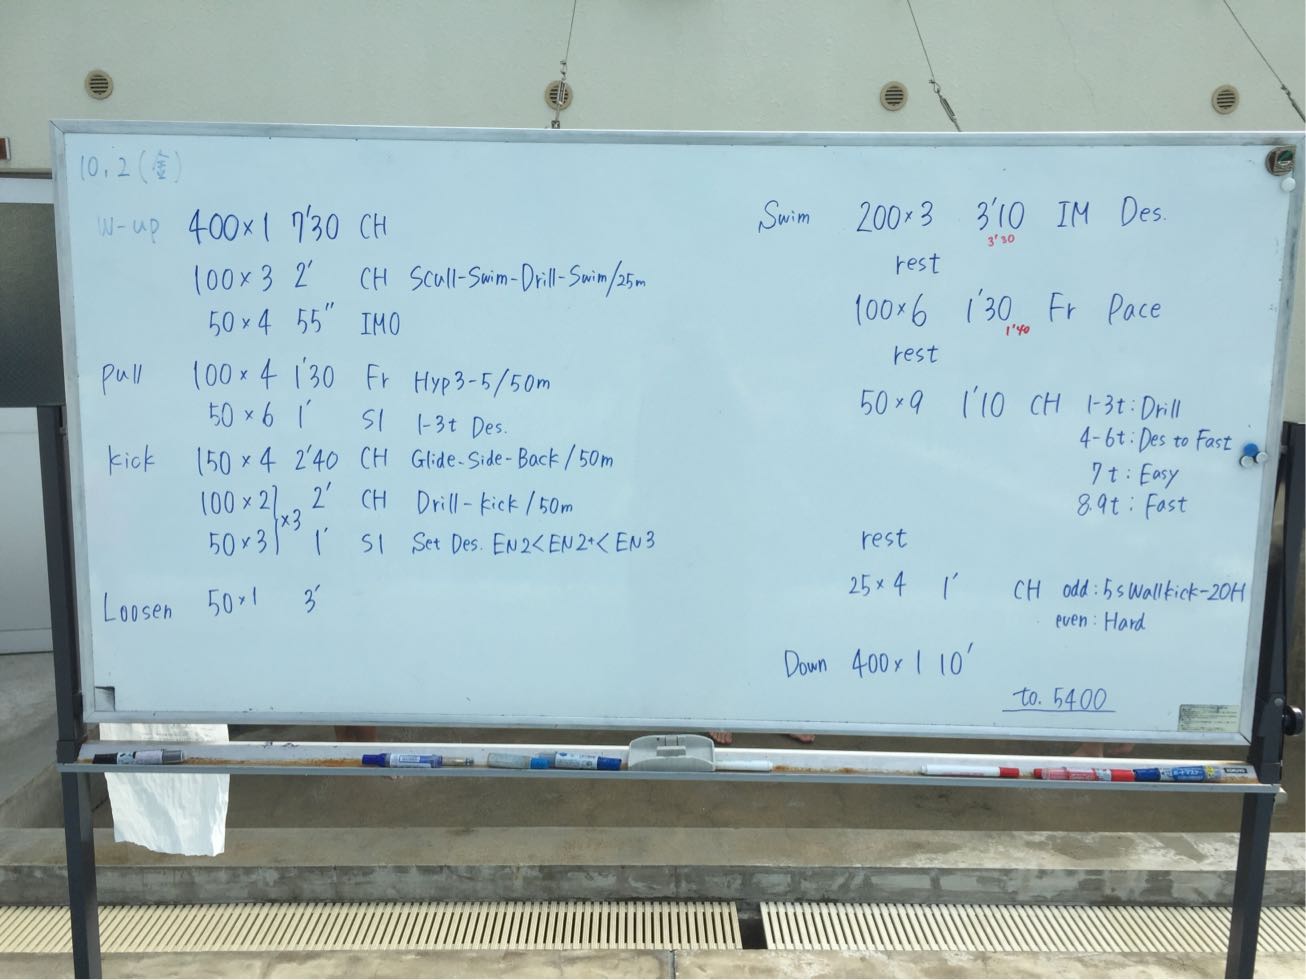 10.2(金)
W-up 400×1 7'30 CH
100×3 2' CH Scull-Swim-Drill-Swim/25m
50×4 55" IMO
Pull 100×4 1'30 Fr Hyp3-5/50m
50×6 1' S1 1-3t Des.
kick 150×4 2'40 CH Glide-Side-Back/50m
100×2 2' CH Drill-kick/50m
×3
50×3 1' S1 Set Des. EN2<EN2+<EN3
Loosen 50×1 3'
Swim 200×3 3'10 IM Des.
3'30
rest
100×6 1'30 Fr Pace
1'40
rest
50×9 1'10 CH 1-3t:Drill
4-6t:Des to Fast
7t:Easy
8.9t:Fast
rest
25×4 1' CH odd:5sWallkick-20H
even:Hard
Down 400×1 10'
to. 5400